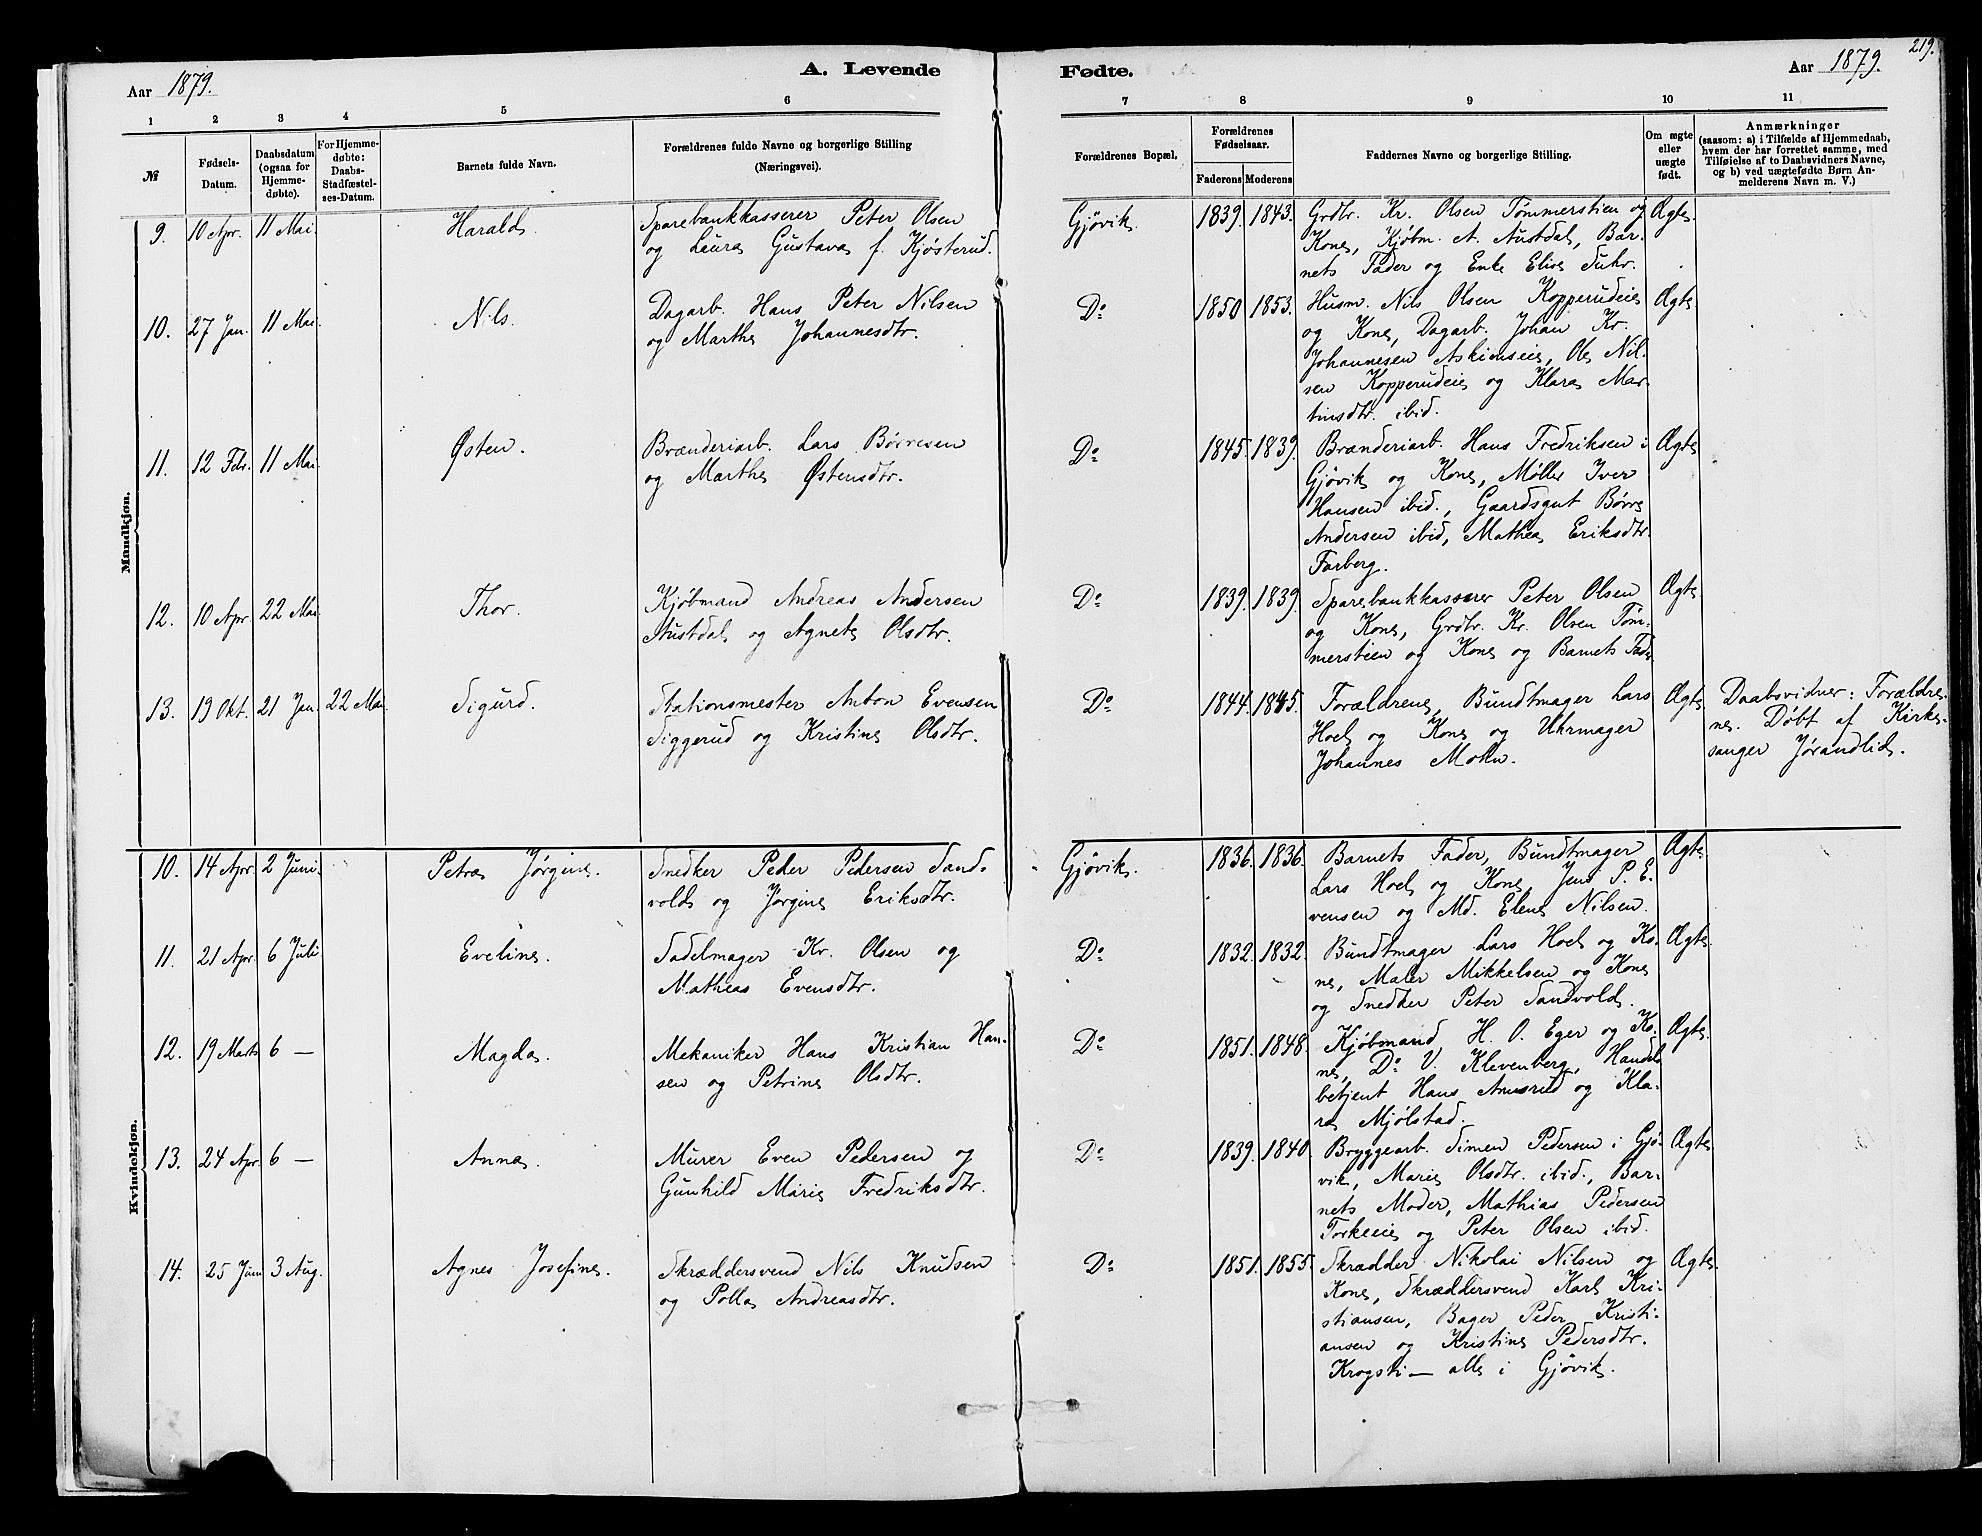 219.
Aar 1879.
A. Levende
Fødte.
Aar 1879.
1 2 3 4 5 6 7 8 9 10 11
№
Fødsels-
Datum.
Daabsdatum
(ogsaa for
Hjemme-
døbte).
For Hjemme-
døbte:
Daabs-
Stadfæstel-
ses-Datum.
Barnets fulde Navn.
Forældrenes fulde Navne og borgerlige Stilling
(Næringsvei).
Forældrenes Bopæl.
Forældrenes
Fødselsaar.
Faderens Moderens
Faddernes Navne og borgerlige Stilling.
Om ægte
eller
uægte
født.
Anmærkninger
(saasom: a) i Tilfælde af Hjemmedaab,
hvem der har forrettet samme, med
Tilføielse af to Daabsvidners Navne,
og b) ved uægtefødte Børn An-
melderens Navn m. V.)
Mandkjøn.
9. 10 Apr. 11 Mai. Harald. Sparebankkasserer Peter Olsen
og Laura Gustava f. Kjøsterud.
Gjøvik. 1839. 1843. Grdbr. Kr. Olsen Tømmerstien og
Kone, Kjøbm. A. Austdal, Bar-
nets Fader og Enke Elise Suhr.
Ægte
10. 27 Jan. 11 Mai. Nils. Dagarb. Hans Peter Nilsen
og Marthe Johannesdtr.
Do 1850 1853. Husm. Nils Olsen Kopperudeie
og Kone, Dagarb. Johan Kr.
Johannesen Askimseie, Ole Nil-
sen Kopperudeie og Klara Mar-
tinsdtr. ibid.
Ægte
11. 12 Febr. 11 Mai. Østen. Brænderiarb. Lars Børresen
og Marthe Østensdtr.
Do 1845. 1839. Brænderiarb. Hans Fredriksen i
Gjøvik og Kone, Møller Iver
Hansen ibid., Gaardsgut Børre
Andersen ibid, Mathea Eriksdtr.
Farberg.
Ægte
12. 10 Apr. 22 Mai. Thor. Kjøbmand Andreas Andersen
Austdal og Agnete Olsdtr.
Do 1839. 1839. Sparebankkasserer Peter Olsen
og Kone, Grdbr. Kr. Olsen Tøm-
merstien og Kone og Barnets Fader
Ægte
13. 19 Okt. 21 Jan. 22 Mai. Sigurd. Stationsmester Anton Evensen
Siggerud og Kristine Olsdtr.
Do 1844. 1845. Forældrene, Bundtmager Lars
Hoel og Kone og Uhrmager
Johannes Mohn.
Ægte
Daabsvidner: Forældre-
ne. Døbt af Kirke-
sanger Jørandlid.
Kvindekjøn.
10. 14 Apr. 2 Juni. Petra Jørgine. Snedker Peder Pedersen Sand-
vold og Jørgine Eriksdtr.
Gjøvik. 1836. 1836. Barnets Fader, Bundtmager
Lars Hoel og Kone, Jens P. E-
vensen og Md. Elene Nilsen.
Ægte
11. 21 Apr. 6 Juli Eveline. Sadelmager Kr. Olsen og
Mathea Evensdtr.
Do 1832. 1832. Bundtmager Lars Hoel og Ko-
ne, Maler Mikkelsen og Kone
og Snedker Peter Sandvold.
Ægte.
12. 19 Marts 6 — Magda. Mekaniker Hans Kristian Han-
sen og Petrine Olsdtr.
Do 1851. 1848. Kjøbmand H. O. Eger og Ko-
ne, Do V. Klevenberg, Handels-
betjent Hans Amsrud og Kla-
ra Mjølstad.
Ægte.
13. 24 Apr. 6 — Anna. Murer Even Pedersen og
Gunhild Marie Fredriksdtr.
Do 1839. 1840. Bryggearb. Simen Pedersen i Gjø-
vik, Marie Olsdtr. ibid., Bar-
nets Moder, Mathias Pedersen
og Peter Olsen ibid.
Ægte
14. 25 Juni 3 Aug. Agnes Josefine. Skræddersvend Nils Knudsen
og Polla Andreasdtr.
Do 1851. 1855. Skrædder Nikolai Nilsen og
Kone, Skræddersvend Karl Kri-
stiansen, Bager Peder Kristi-
ansen og Kristine Pedersdtr.
Krogsti — alle i Gjøvik.
Ægte.